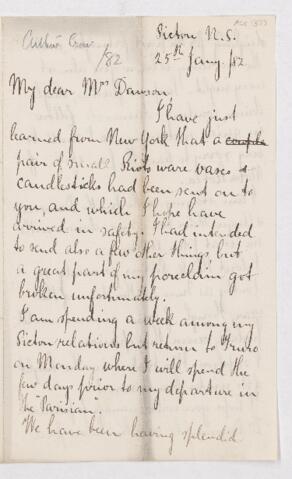 Arthur Crow
/82
Pictou N.S.
25th Jany /82
My dear Mrs Dawson
I have just
learned from New York that a couple
pair of small Kioto ware vases &
candlesticks had been sent on to
you, and which I hope have
arrived in safety. I had intended
to send also a few other things, but
a great part of my porcelain got
broken unfortunately.
I am spending a week among my
Pictou relations but return to Truro
on Monday where I will spend the
few days prior to my departure in
the "Parisian".
We have been having splendid